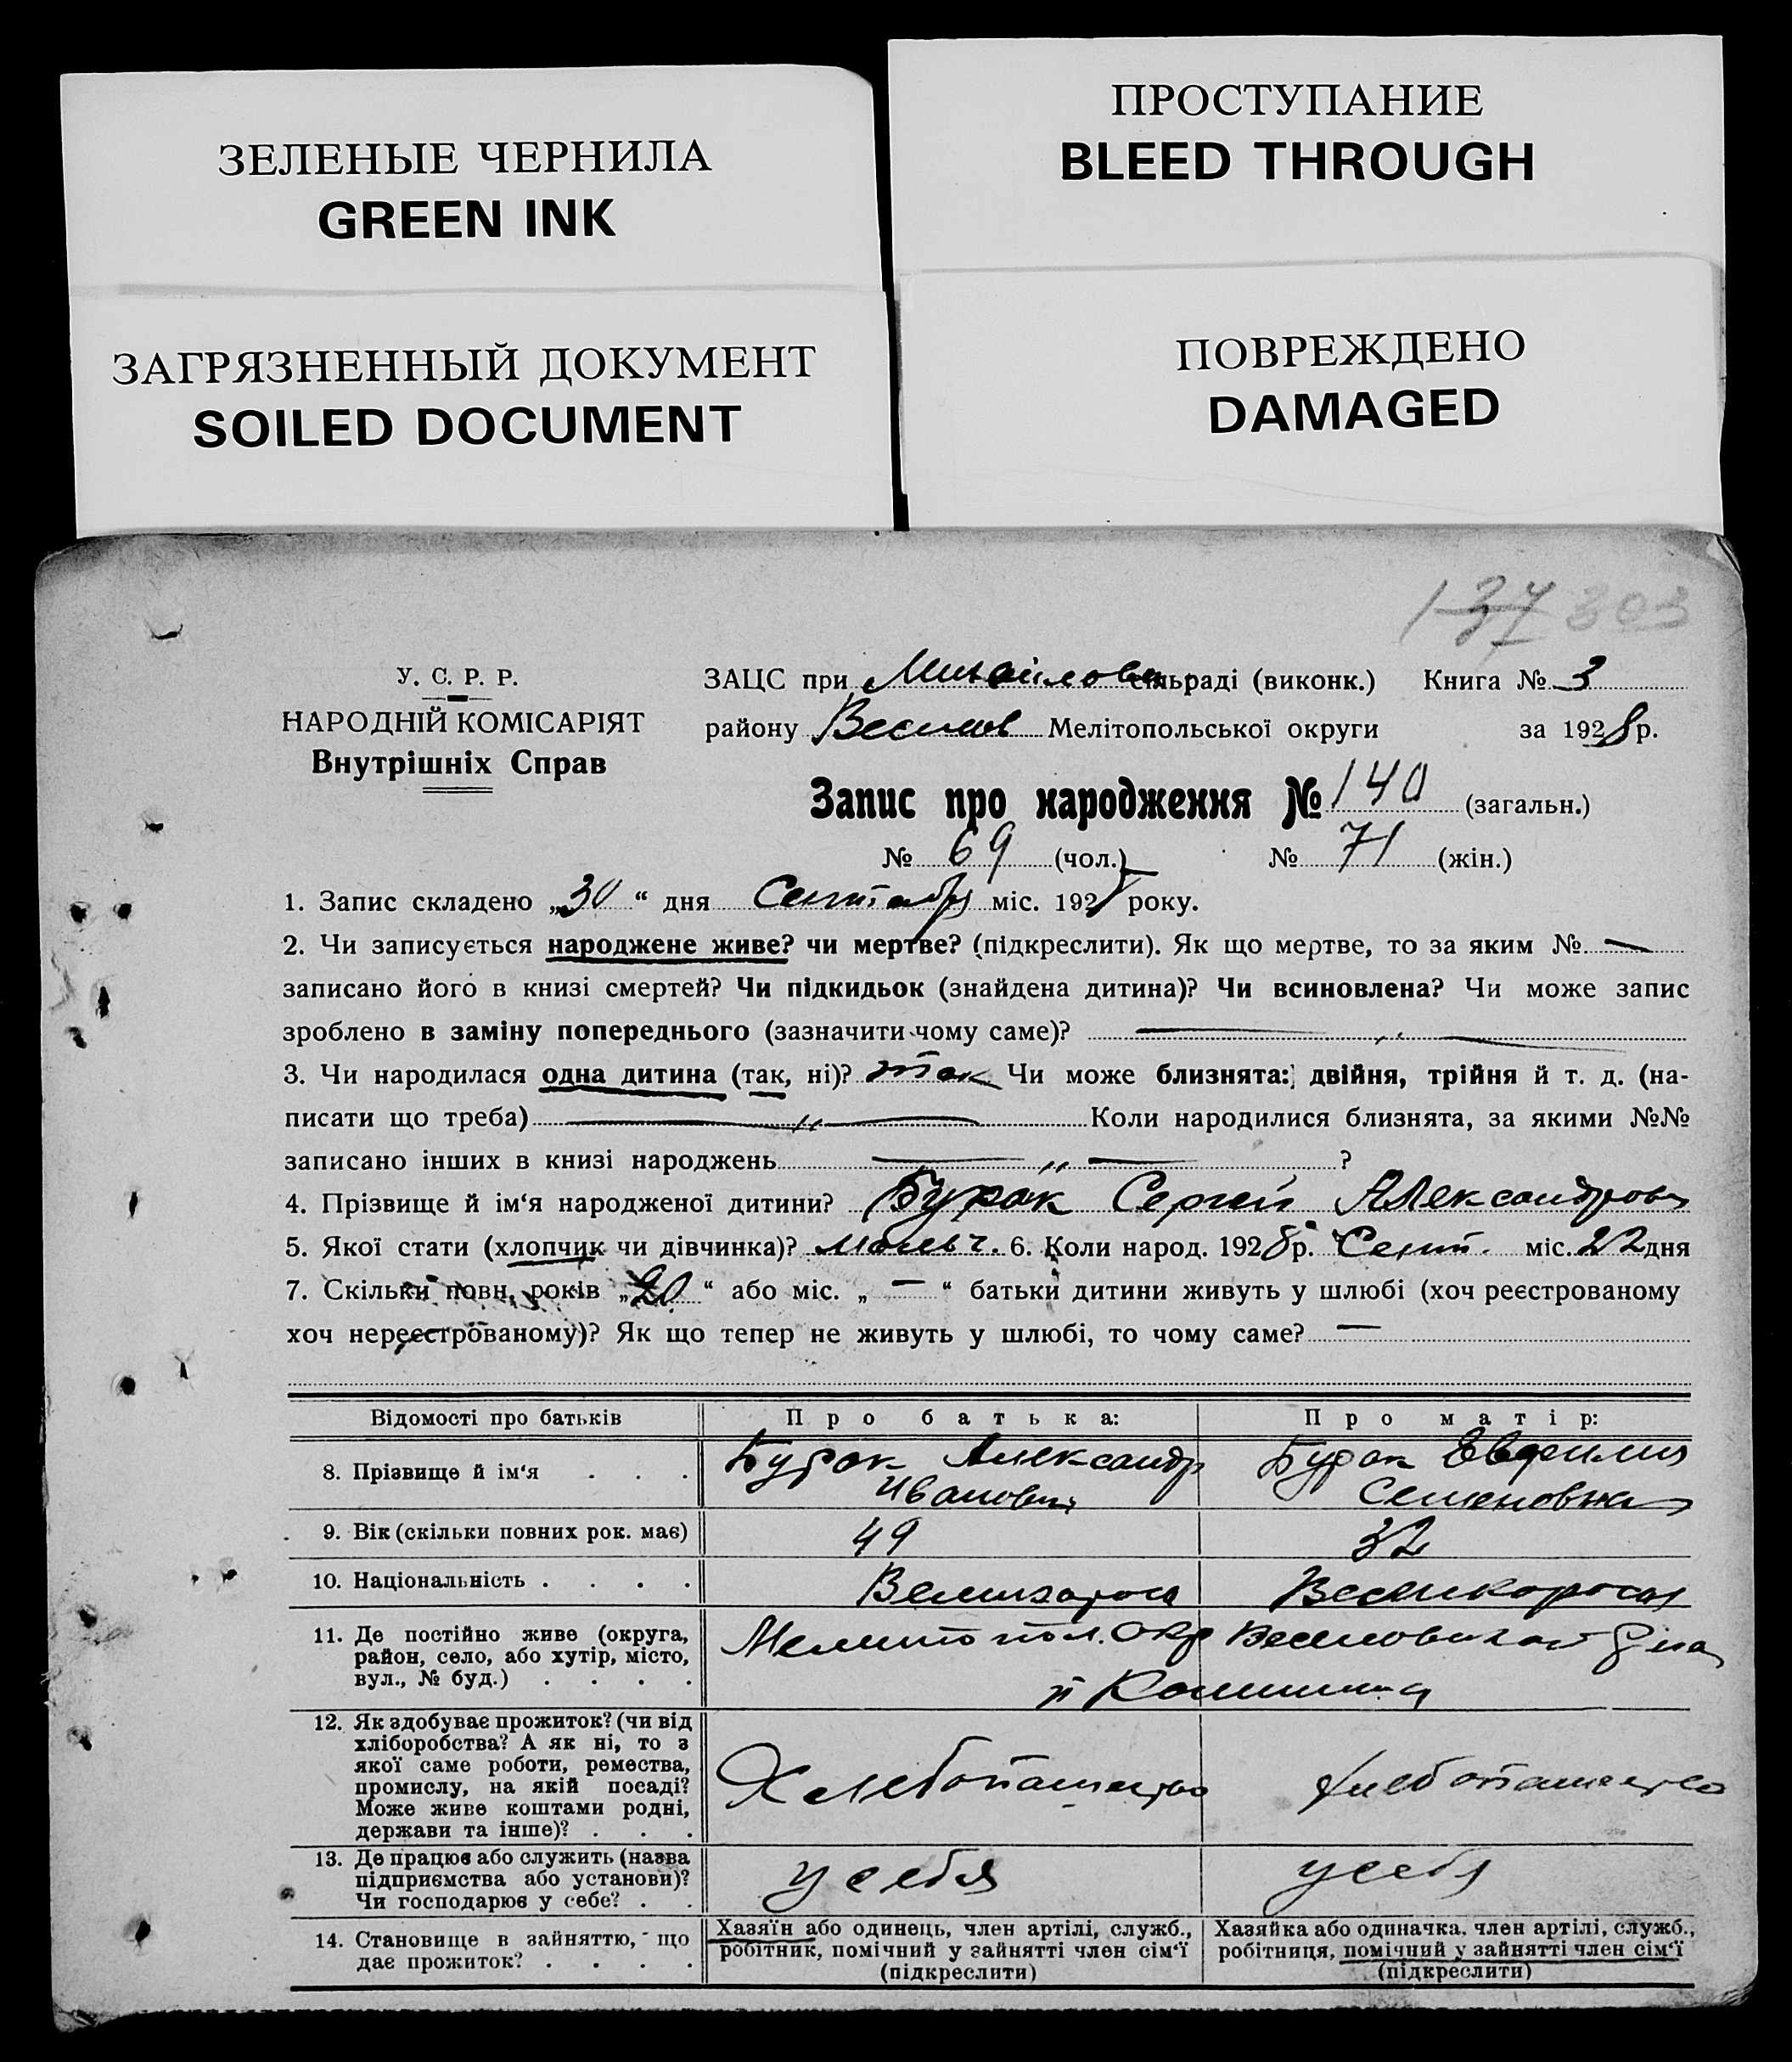 ЗЕЛЕНЫЕ ЧЕРНИЛА
GREEN INK
ЗАГРЯЗНЕННЫЙ ДОКУМЕНТ
SOILED DOCUMENT
ПРОСТУПАНИЕ
BLEED THROUGH
ПОВРЕЖДЕНО
DAMAGED
137 303
У. С. Р. Р.
НАРОДНІЙ КОМІСАРІЯТ
Внутрішніх Справ
ЗАЦС при Михайлов сільраді (виконк.) Книга № 3
району Веселов Мелітопольської округи за 1928 р.
Запис про народження № 140 (загальн.)
№ 69 (чол.) № 71 (жін.)
1. Запис складено „30“ дня Сентября міс. 1928 року.
2. Чи записується народжене живе? чи мертве? (підкреслити). Як що мертве, то за яким № —
записано його в книзі смертей? Чи підкидьок (знайдена дитина)? Чи всиновлена? Чи може запис
зроблено в заміну попереднього (зазначити чому саме)? — „ —
3. Чи народилася одна дитина (так, ні)? так Чи може близнята: двійня, трійня й т. д. (на-
писати що треба) — „ — Коли народилися близнята, за якими №№
записано інших в книзі народжень — „ — ?
4. Прізвище й ім‘я народженої дитини? Бурак Сергей Александрович
5. Якої стати (хлопчик чи дівчинка)? мальч. 6. Коли народ. 1928 р. Сент. міс. 22 дня
7. Скільки повн. років „20“ або міс. „ — “ батьки дитини живуть у шлюбі (хоч реєстрованому
хоч нереєстрованому)? Як що тепер не живуть у шлюбі, то чому саме? —
Відомості про батьків Про батька: Про матір:
8. Прізвище й ім‘я . . . Бурак Александр Бурак Евфимия
Иванович Семеновна
9. Вік (скільки повних рок. має) 49 32
10. Національність . . . . Великоросс Великоросска
11. Де постійно живе (округа, Мелитопол. Окр Веселовского р-на
район, село, або хутір, місто,
вул., № буд.) . . . .
12. Як здобуває прожиток? (чи від
хліборобства? А як ні, то з
якої саме роботи, ремества, Хлебопашество хлебопашество
промислу, на якій посаді?
Може живе коштами родні,
держави та інше)? . . .
13. Де працює або служить (назва у себя у себя
підприємства або установи)?
Чи господарює у себе? . .
14. Становище в зайняттю, що
дає прожиток? . . . .
Хазяїн або одинець, член артілі, служб.,
робітник, помічний у зайнятті член сім‘ї
(підкреслити)
Хазяйка або одиначка, член артілі, служб.,
робітниця, помічний у зайнятті член сім‘ї
(підкреслити)